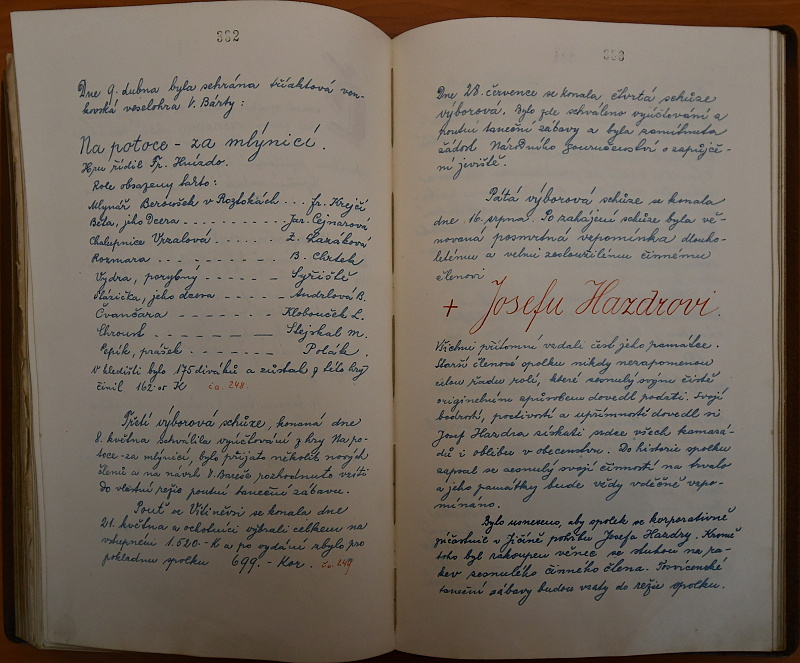 382
Dne 9. dubna byla sehrána tříaktová ven-
kovská veselohra V. Bárty:
Na potoce - za mlýnicí.
Hru řídil Fr. Hnízdo.
Role obsazeny takto:
Mlynář Beroušek v Roztokách . . . Fr. Krejčí
Běta, jeho dcera - - - - - - - - - Jar. Cejnarová
Chalupnice Vrzalová . . . . . . Z. Kazáková
Rozmara - - - - - - - - B. Chrtek
Vydra, porybný - - - - - - Syřiště
Márička, jeho dcera - - - - - Andrlová B.
Čvančara - - - - - - - Klobouček L.
Chroust - - - - - - - Stejskal M.
Pepík, prášek . - - - - - - - Polák.
V hledišti bylo 175 diváků a zůstal z této hry
činil 162.05 K č.a. 248.
Třetí výborová schůze, konaná dne
8. května schválila vyúčtování z hry Na po-
toce-za mlýnicí, bylo přijato několik nových
členů a na návrh V. Bareše rozhodnuto vzíti
do vlastní režie poutní taneční zábavu.
Pouť ve Vitiněvsi se konala dne
21. května a ochotníci vybrali celkem na
vstupném 1.520.- K a po vydání zbylo pro
pokladnu spolku 699.- Kor. č.a. 249
383
Dne 28. července se konala čtvrtá schůze
výborová. Bylo zde schváleno vyúčtování z
poutní taneční zábavy a byla zamítnuta
žádost Národního souručenství o zapůjče-
ní jeviště.
Pátá výborová schůze se konala
dne 16. srpna. Po zahájení schůze byla vě-
novaná posmrtná vzpomínka dlouho-
letému a velmi zasloužilému činnému
členovi
+ Josefu Hazdrovi.
Všichni přítomní vzdali čest jeho památce.
Starší členové spolku nikdy nezapomenou
celou řadu rolí, které zesnulý svým čistě
originelním způsobem dovedl podati. Svojí
bodrostí, poctivostí a upřímností dovedl si
Josef Hazdra získati srdce všech kamará-
dů i oblibu v obecenstvu. Do historie spolku
zapsal se zesnulý svojí činností na trvalo
a jeho památky bude vždy vděčně vzpo-
mínáno.
Bylo usneseno, aby spolek se korporativně
zúčastnil v Jičíně pohřbu Josefa Hazdry. Kromě
toho byl zakoupen věnec se stuhou na ra-
kev zesnulého činného člena. Posvícenské
taneční zábavy budou vzaty do režie spolku.